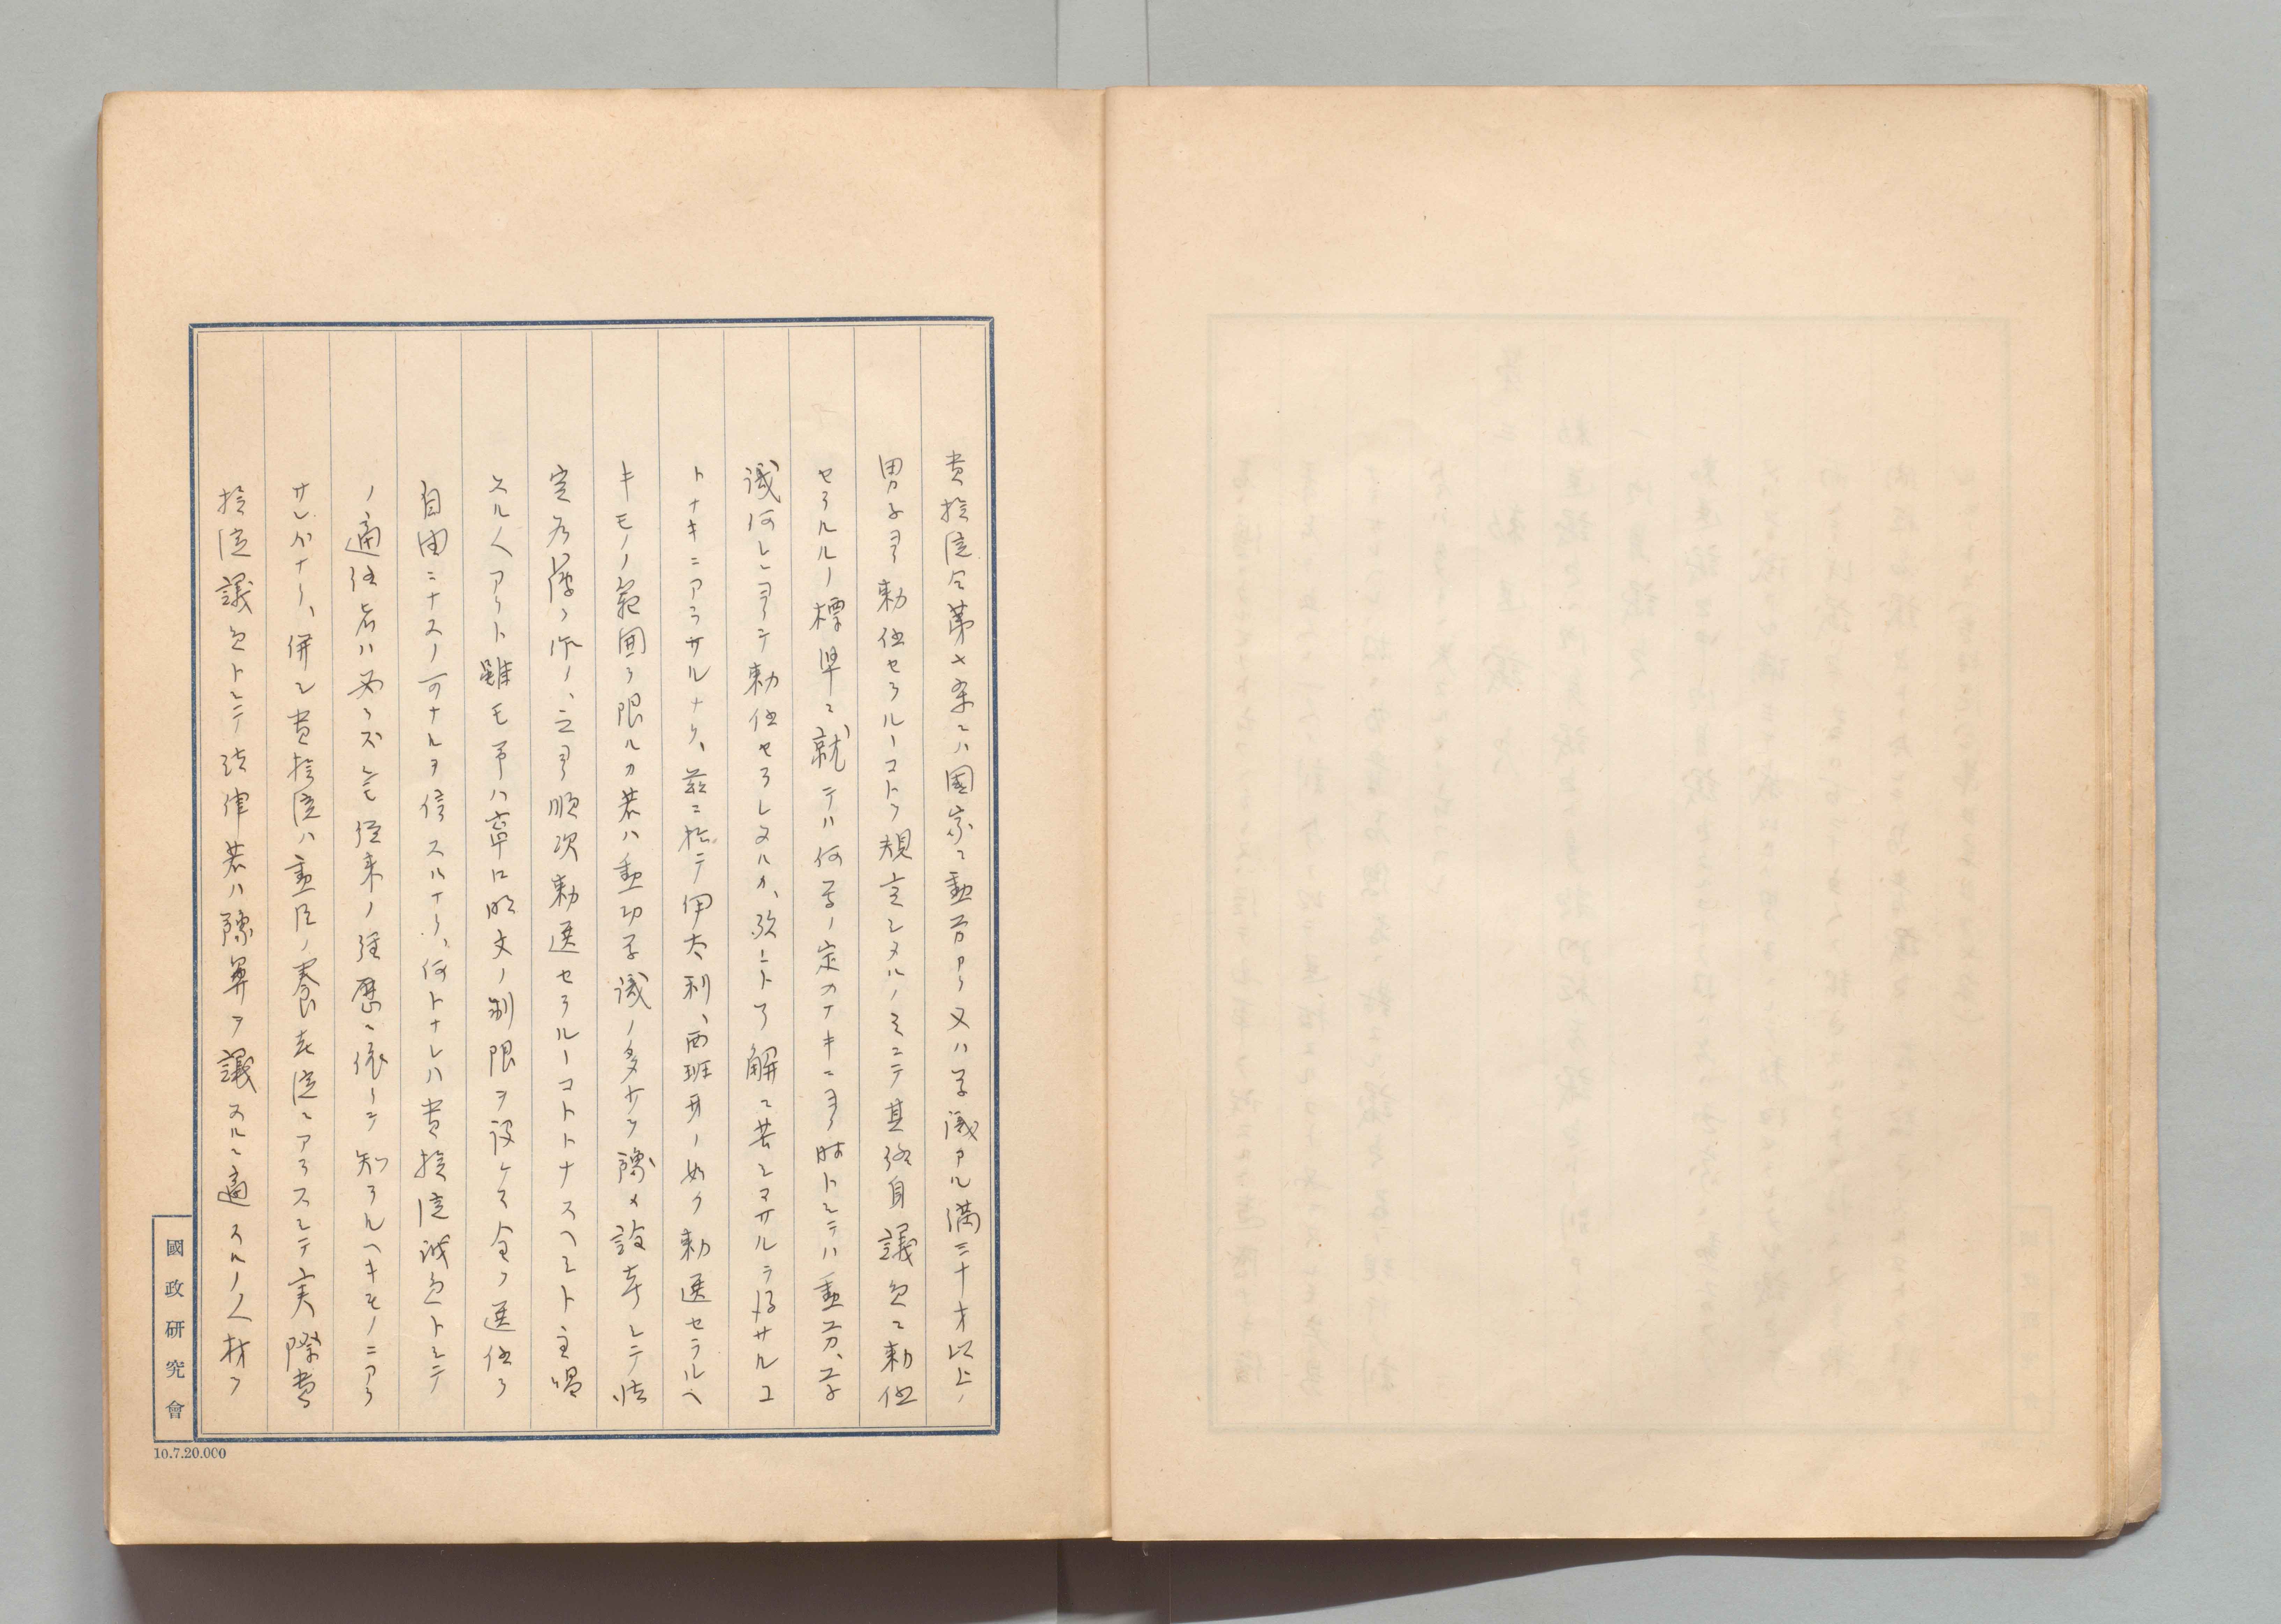 貴族院令第六条ニハ国家ニ勳労アリ又ハ学識アル満三十才以上ノ
男子ヨリ勅任セラルヽコトヲ規定シタルノミニテ其終身議員ニ勅任
セラルヽノ標準ニ就テハ何等ノ定カナキニヨリ時トシテハ勳労、学
識何レニヨリテ勅任セラレタルカ、殆ント了解ニ苦シマサルヲ得サルコ
トナキニアラサルナリ、茲ニ於テ伊太利、西班牙ノ如ク勅選セラルヘ
キモノノ範囲ヲ限ルカ若ハ勳功学識ノ多少ヲ予メ詮考シテ
定名簿ヲ作リ、之ヨリ順次勅選セラルヽコトトナスヘシト主唱
スル人アリト雖モ予ハ寧ロ明文ノ制限ヲ設ケス全ク選任ヲ
自由ニナスノ可ナルヲ信スルナリ、何トナレハ貴族院議員トシテ
ノ適任者ハ必スシモ従来ノ経歴ニ依リテ知ラルヘキモノニアラ
サレハナリ、併シ貴族院ハ勳臣ノ養老院ニアラスシテ実際貴
族院議員トシテ法律若ハ豫算ヲ議スルニ適スルノ人材ヲ
國政研究會
10.7.20.000